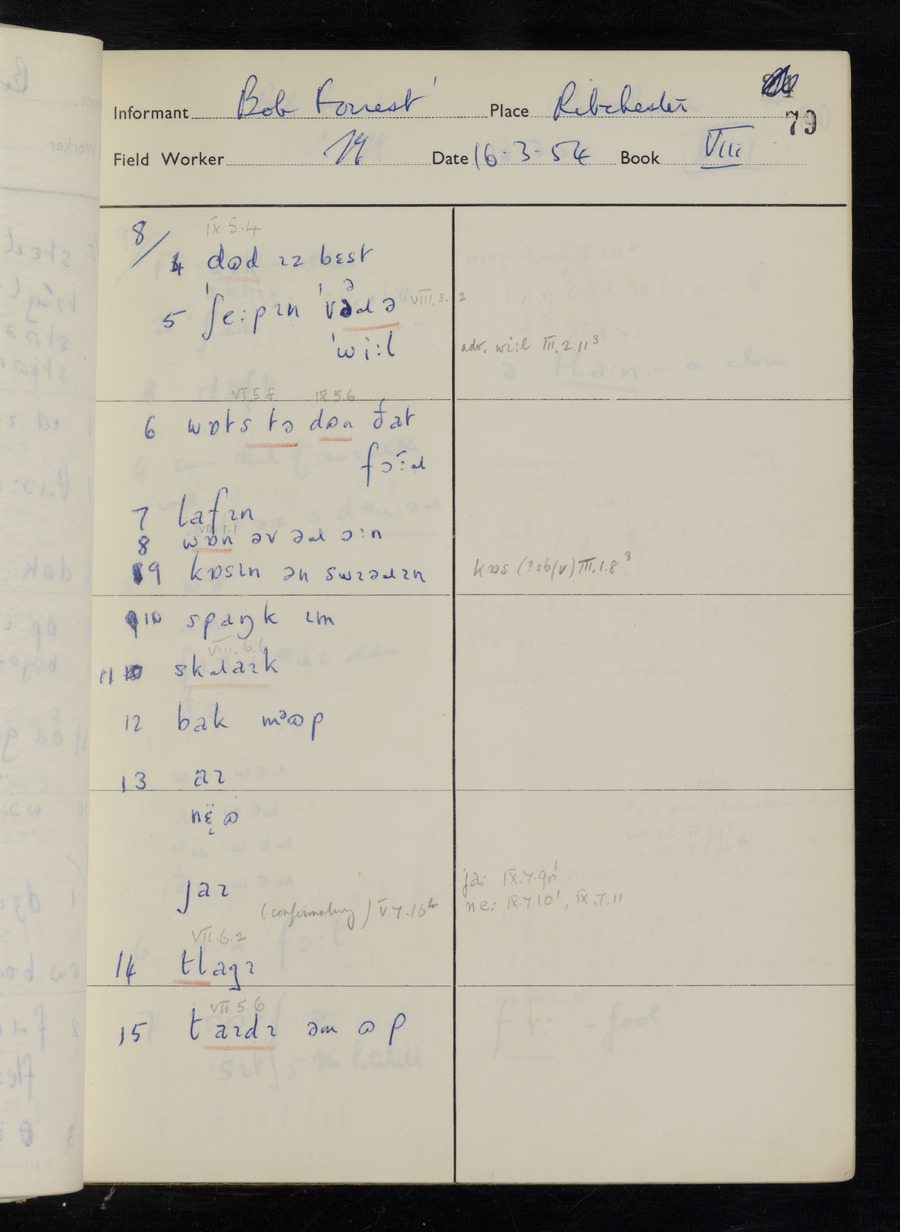 79
Informant Bob Forrest Place Ribchester
Field Worker Date 16-3-54 Book VIII
8/ IX.5.4
4 dɷd ɪz bɛst
5 ˈʃe:pɪn ˈvəɹə VIII.3.2
ˈwi:l adv. wi:l III.2.11³
VI.5.8 IX.5.6
6 wɒts tə dɷn ðat
fɔ:ɹ
7 lafɪn
8 wɒn əv əɹ ɔ:n
9 kɒsɪn ən swɪəɹɪn kɒs (? sb/v) III.1.8³
10 spaŋk ɪm
VIII.6.6
11 skɹaɪk
12 bak mᵊɷp
13 aɪ
nɛ̈ɷ
jaɪ ja: IX.7.9
(confirmatory) V.7.16 ne: IX.7.10¹, IX.7.11
VII.6.2
14 tlagɪ
VII.5.6
15 taɪdɪ əm ɷp